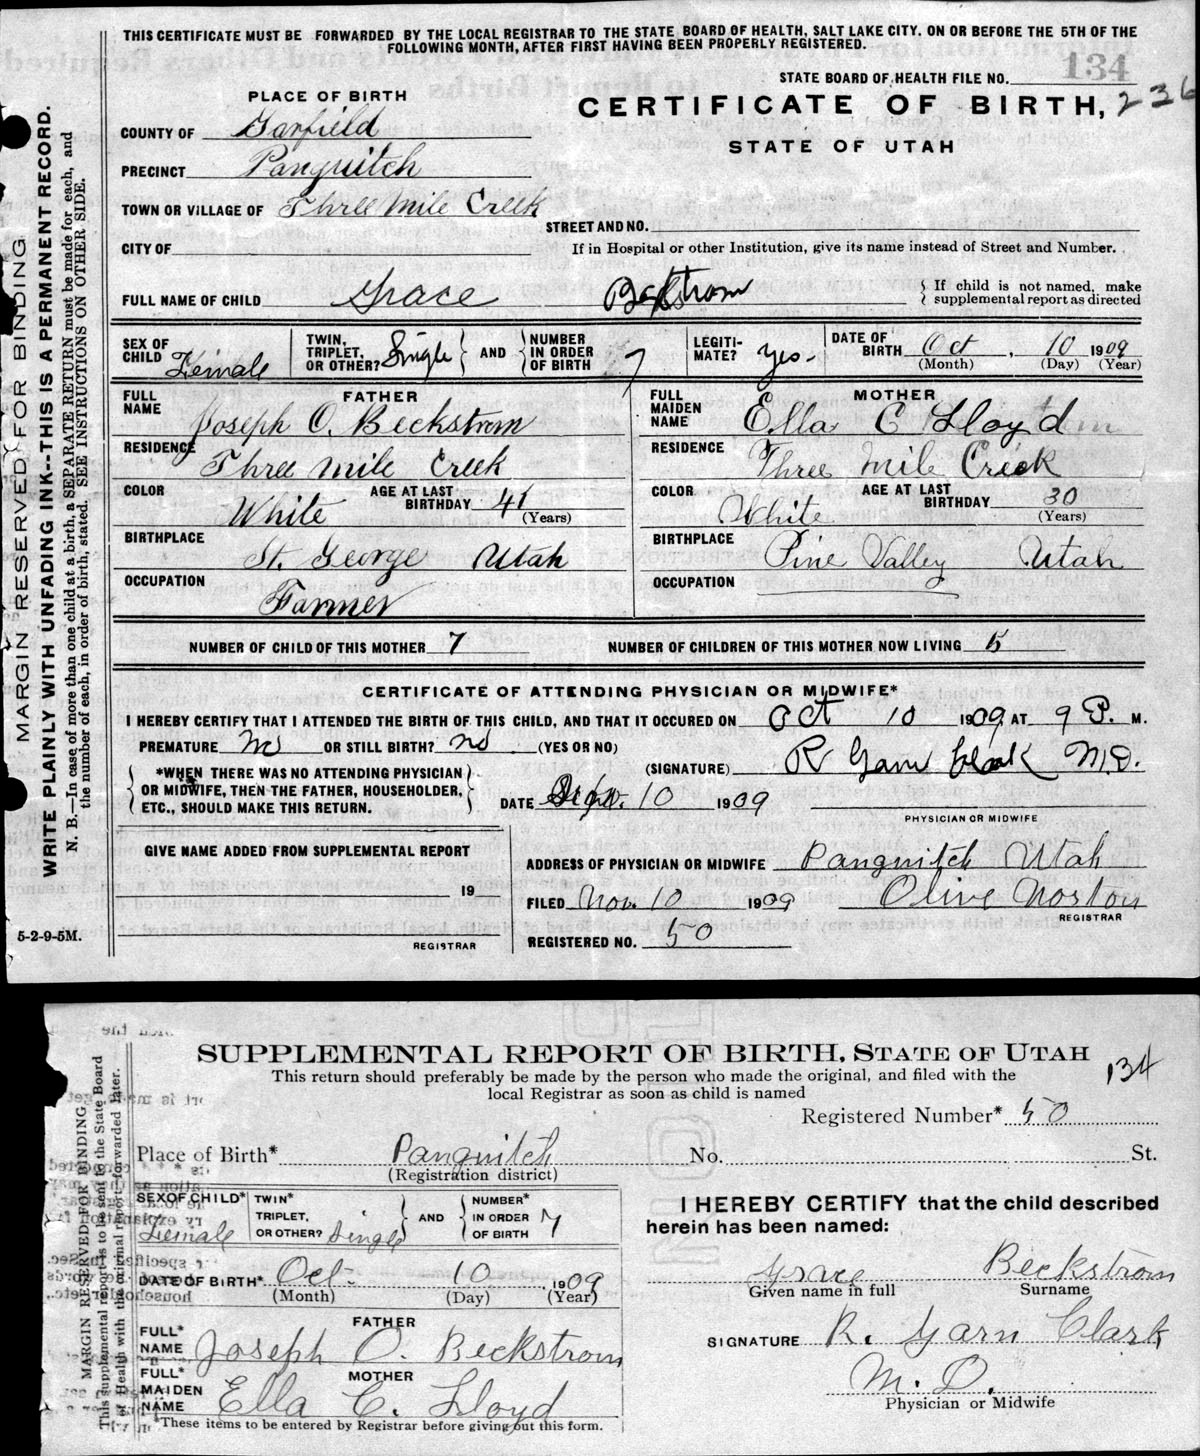 THIS CERTIFICATE MUST BE FORWARDED BY THE LOCAL REGISTRAR TO THE STATE BOARD OF HEALTH, SALT LAKE CITY. ON OR BEFORE THE 5TH OF THE
FOLLOWING MONTH, AFTER FIRST HAVING BEEN PROPERLY REGISTERED.
STATE BOARD OF HEALTH FILE NO. 134
PLACE OF BIRTH
CERTIFICATE OF BIRTH, 236
STATE OF UTAH
COUNTY OF Garfield
PRECINCT Panguitch
TOWN OR VILLAGE OF Three Mile Creek
STREET AND NO.
CITY OF
If in Hospital or other Institution, give its name instead of Street and Number.
FULL NAME OF CHILD Grace Beckstrom
If child is not named, make
supplemental report as directed
SEX OF CHILD Female
TWIN, TRIPLET, OR OTHER? Single AND NUMBER IN ORDER OF BIRTH 7
LEGITIMATE? Yes-
DATE OF BIRTH Oct, 10 1909
(Month) (Day) (Year)
FATHER
FULL NAME Joseph O. Beckstrom
RESIDENCE Three Mile Creek
COLOR White AGE AT LAST BIRTHDAY 41 (Years)
BIRTHPLACE St. George Utah
OCCUPATION Farmer
MOTHER
FULL MAIDEN NAME Ella C Lloyd
RESIDENCE Three Mile Creek
COLOR White AGE AT LAST BIRTHDAY 30 (Years)
BIRTHPLACE Pine Valley Utah
OCCUPATION
NUMBER OF CHILD OF THIS MOTHER 7 NUMBER OF CHILDREN OF THIS MOTHER NOW LIVING 5
CERTIFICATE OF ATTENDING PHYSICIAN OR MIDWIFE*
I HEREBY CERTIFY THAT I ATTENDED THE BIRTH OF THIS CHILD, AND THAT IT OCCURED ON Oct 10 1909, AT 9 P. M.
PREMATURE No OR STILL BIRTH? no (YES OR NO)
(SIGNATURE) R Garn Clark M.D.
*WHEN THERE WAS NO ATTENDING PHYSICIAN
OR MIDWIFE, THEN THE FATHER, HOUSEHOLDER,
ETC., SHOULD MAKE THIS RETURN.
DATE 10 1909
PHYSICIAN OR MIDWIFE
GIVE NAME ADDED FROM SUPPLEMENTAL REPORT
19
REGISTRAR
ADDRESS OF PHYSICIAN OR MIDWIFE Panguitch Utah
FILED Nov. 10 1909 Olive Norton
REGISTRAR
REGISTERED NO. 50
5-2-9-5M.
MARGIN RESERVED FOR BINDING
WRITE PLAINLY WITH UNFADING INK--THIS IS A PERMANENT RECORD.
N. B.—In case of more than one child at a birth, a SEPARATE RETURN must be made for each, and
the number of each, in order of birth, stated. SEE INSTRUCTIONS ON OTHER SIDE.
SUPPLEMENTAL REPORT OF BIRTH, STATE OF UTAH
134
This return should preferably be made by the person who made the original, and filed with the
local Registrar as soon as child is named
Registered Number* 50
Place of Birth* Panguitch No. St.
(Registration district)
SEX OF CHILD* Female
TWIN* TRIPLET, OR OTHER? Single AND NUMBER* IN ORDER OF BIRTH 7
DATE OF BIRTH* Oct. 10 1909
(Month) (Day) (Year)
FATHER
FULL* NAME Joseph O. Beckstrom
MOTHER
FULL* MAIDEN NAME Ella C. Lloyd
*These items to be entered by Registrar before giving out this form.
I HEREBY CERTIFY that the child described
herein has been named:
Grace Beckstrom
Given name in full Surname
SIGNATURE R. Garn Clark
M. D.
Physician or Midwife
MARGIN RESERVED FOR BINDING
This supplemental report is to be sent to the State Board
of Health with the original report forwarded later.